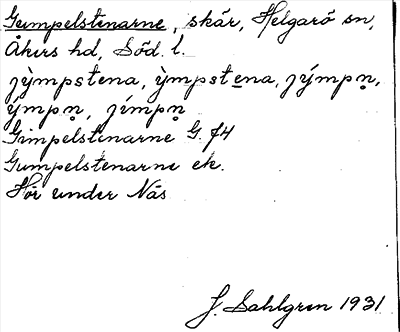 Gumpelstenarne, skär, Helgarö sn,
Åkers hd, Söd. l.
jỳmpstena, ỳmpstena, jýmpn̥,
ýmpn̥, jímpn̥
Gimpelstenarne G. f4
Gumpelstenarne ek.
Hör under Näs
J. Sahlgren 1931